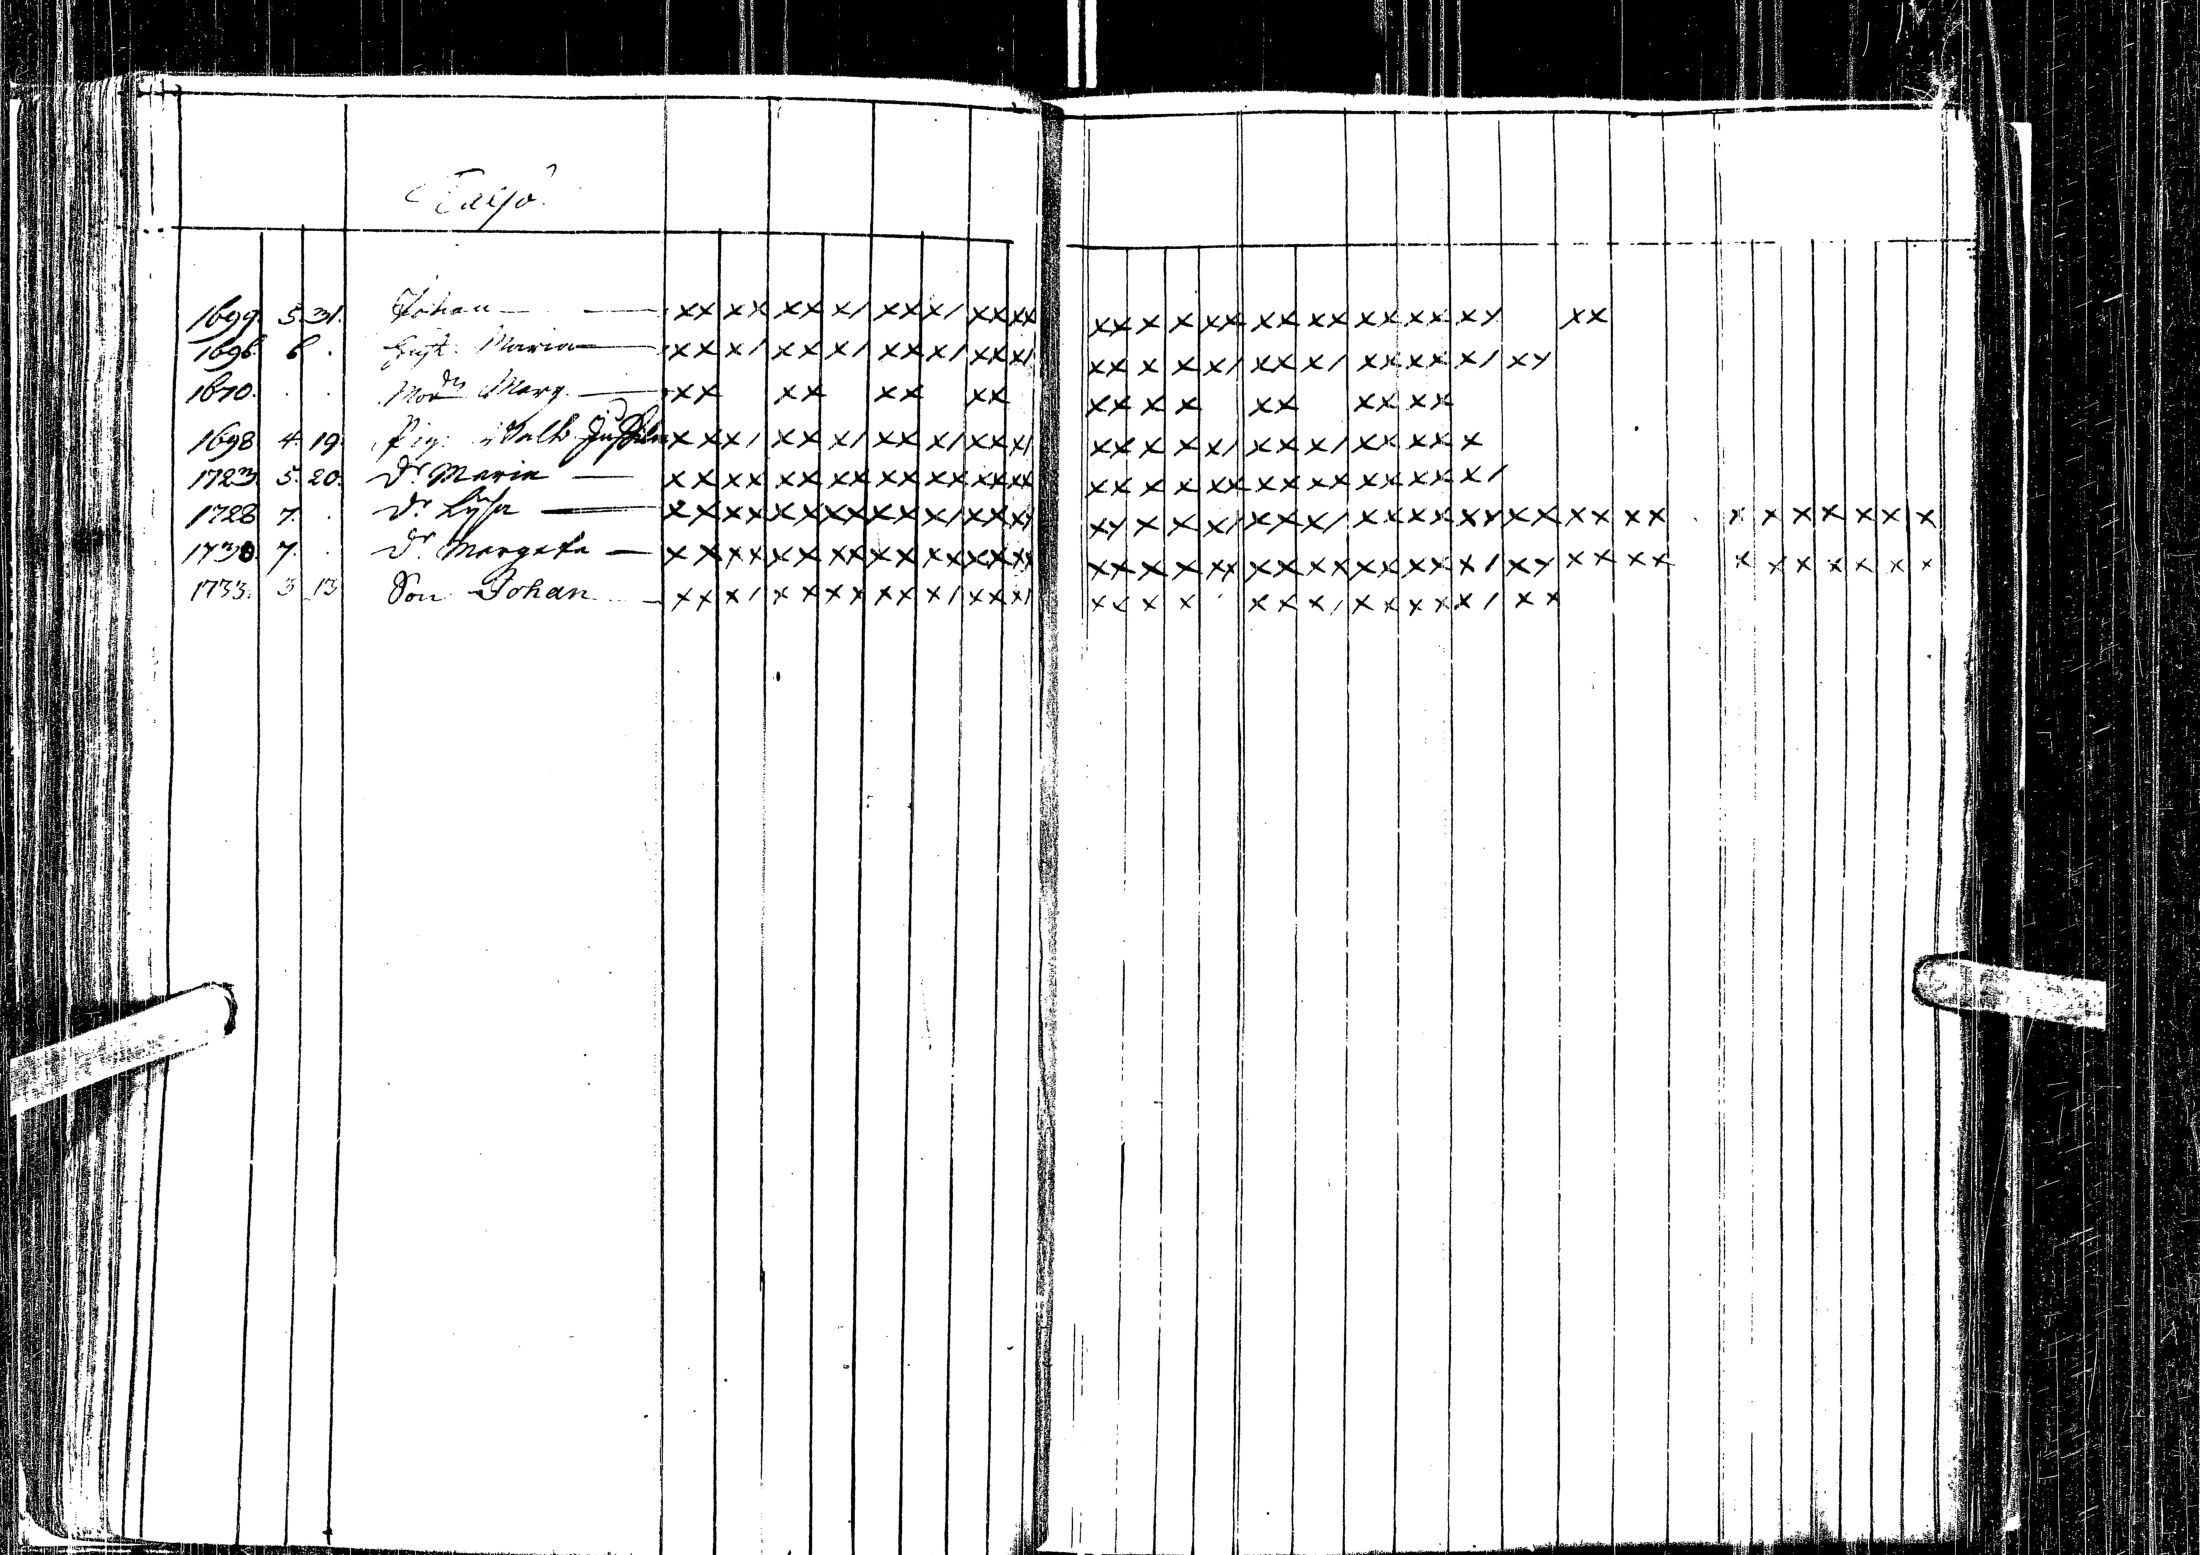 1699 5 31. Johan — xx xx xx x/ xx x/ xx xx xx x x xx xx xx xx xx xy xx
1696. 6. Hust. Maria — xx x/ xx x/ xx x/ xx x/ xx x x x/ xx x/ xx xx x/ xy
1670. . . Modr Marg. — xx xx xx xx xx x x xx xx xx
1698 4. 19. Pig. Walb. xx x/ xx x/ xx x/ xx x/ xx x x x/ xx x/ xx xx x
1723. 5. 20. Dr Maria — xx xx xx xx xx xx xx xx xx x x xx xx xx xx xx x/
1728 7. . Dr Lysa — xx xx xx xx xx x/ xx xy xy x x x/ xx x/ xx xx xy xx xx xx x x x x x x x
1730. 7. . Dr Margeta — xx xx xx xx xx xx xx xx xx x x xx xx xx xx xx x/ xy xx xx x x x x x x x
1733. 3 13 Son Johan — xx x/ xx xx xx x/ xx x/ xx x x xx x/ xx xx x/ xx